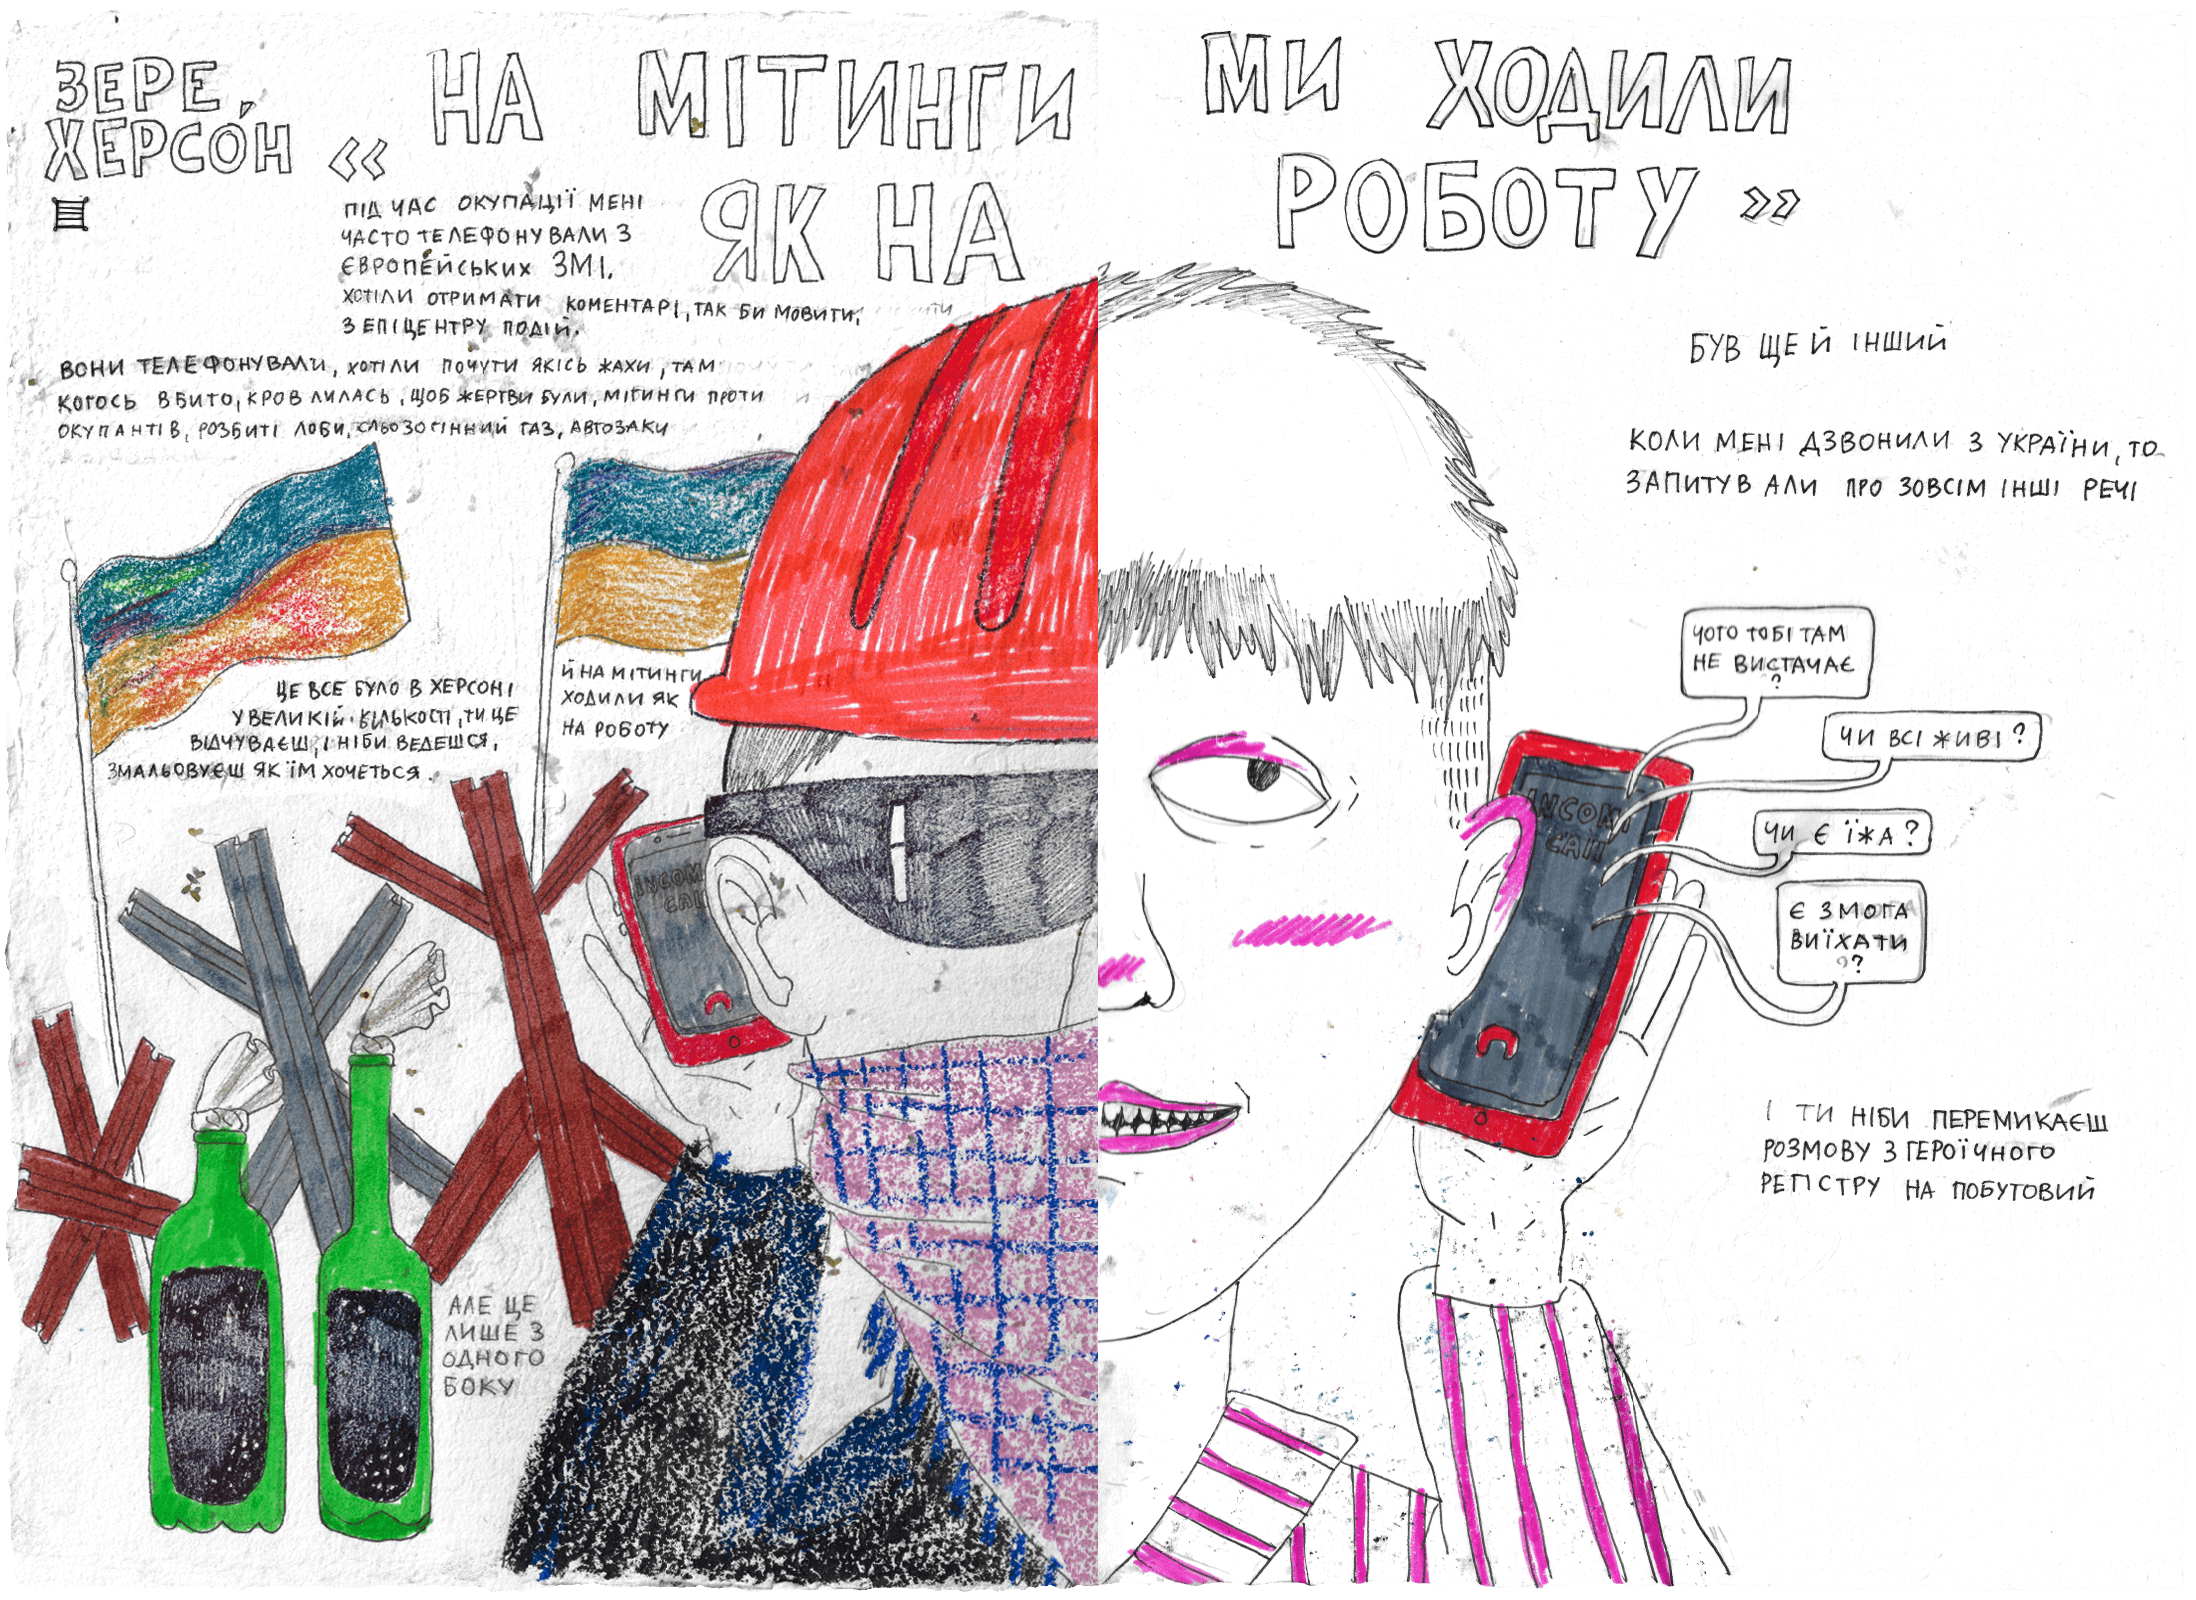 ЗЕРЕ,
ХЕРСОН
« НА МІТИНГИ МИ ХОДИЛИ
ЯК НА РОБОТУ »
ПІД ЧАС ОКУПАЦІЇ МЕНІ
ЧАСТО ТЕЛЕФОНУВАЛИ З
ЄВРОПЕЙСЬКИХ ЗМІ.
ХОТІЛИ ОТРИМАТИ КОМЕНТАРІ, ТАК БИ МОВИТИ,
З ЕПІЦЕНТРУ ПОДІЙ.
ВОНИ ТЕЛЕФОНУВАЛИ, ХОТІЛИ ПОЧУТИ ЯКІСЬ ЖАХИ, ТАМ
КОГОСЬ ВБИТО, КРОВ ЛИЛАСЬ, ЩОБ ЖЕРТВИ БУЛИ, МІТИНГИ ПРОТИ
ОКУПАНТІВ, РОЗБИТІ ЛОБИ, СЛЬОЗОГІННИЙ ГАЗ, АВТОЗАКИ
ЦЕ ВСЕ БУЛО В ХЕРСОНІ
У ВЕЛИКІЙ КІЛЬКОСТІ, ТИ ЦЕ
ВІДЧУВАЄШ, І НІБИ ВЕДЕШСЯ,
ЗМАЛЬОВУЄШ ЯК ЇМ ХОЧЕТЬСЯ.
Й НА МІТИНГИ
ХОДИЛИ ЯК
НА РОБОТУ
INCOM
CALL
АЛЕ ЦЕ
ЛИШЕ З
ОДНОГО
БОКУ
БУВ ЩЕ Й ІНШИЙ
КОЛИ МЕНІ ДЗВОНИЛИ З УКРАЇНИ, ТО
ЗАПИТУВАЛИ ПРО ЗОВСІМ ІНШІ РЕЧІ
ЧОГО ТОБІ ТАМ
НЕ ВИСТАЧАЄ
?
ЧИ ВСІ ЖИВІ?
ЧИ Є ЇЖА?
Є ЗМОГА
ВИЇХАТИ
?
INCOMI
CALL
І ТИ НІБИ ПЕРЕМИКАЄШ
РОЗМОВУ З ГЕРОЇЧНОГО
РЕГІСТРУ НА ПОБУТОВИЙ